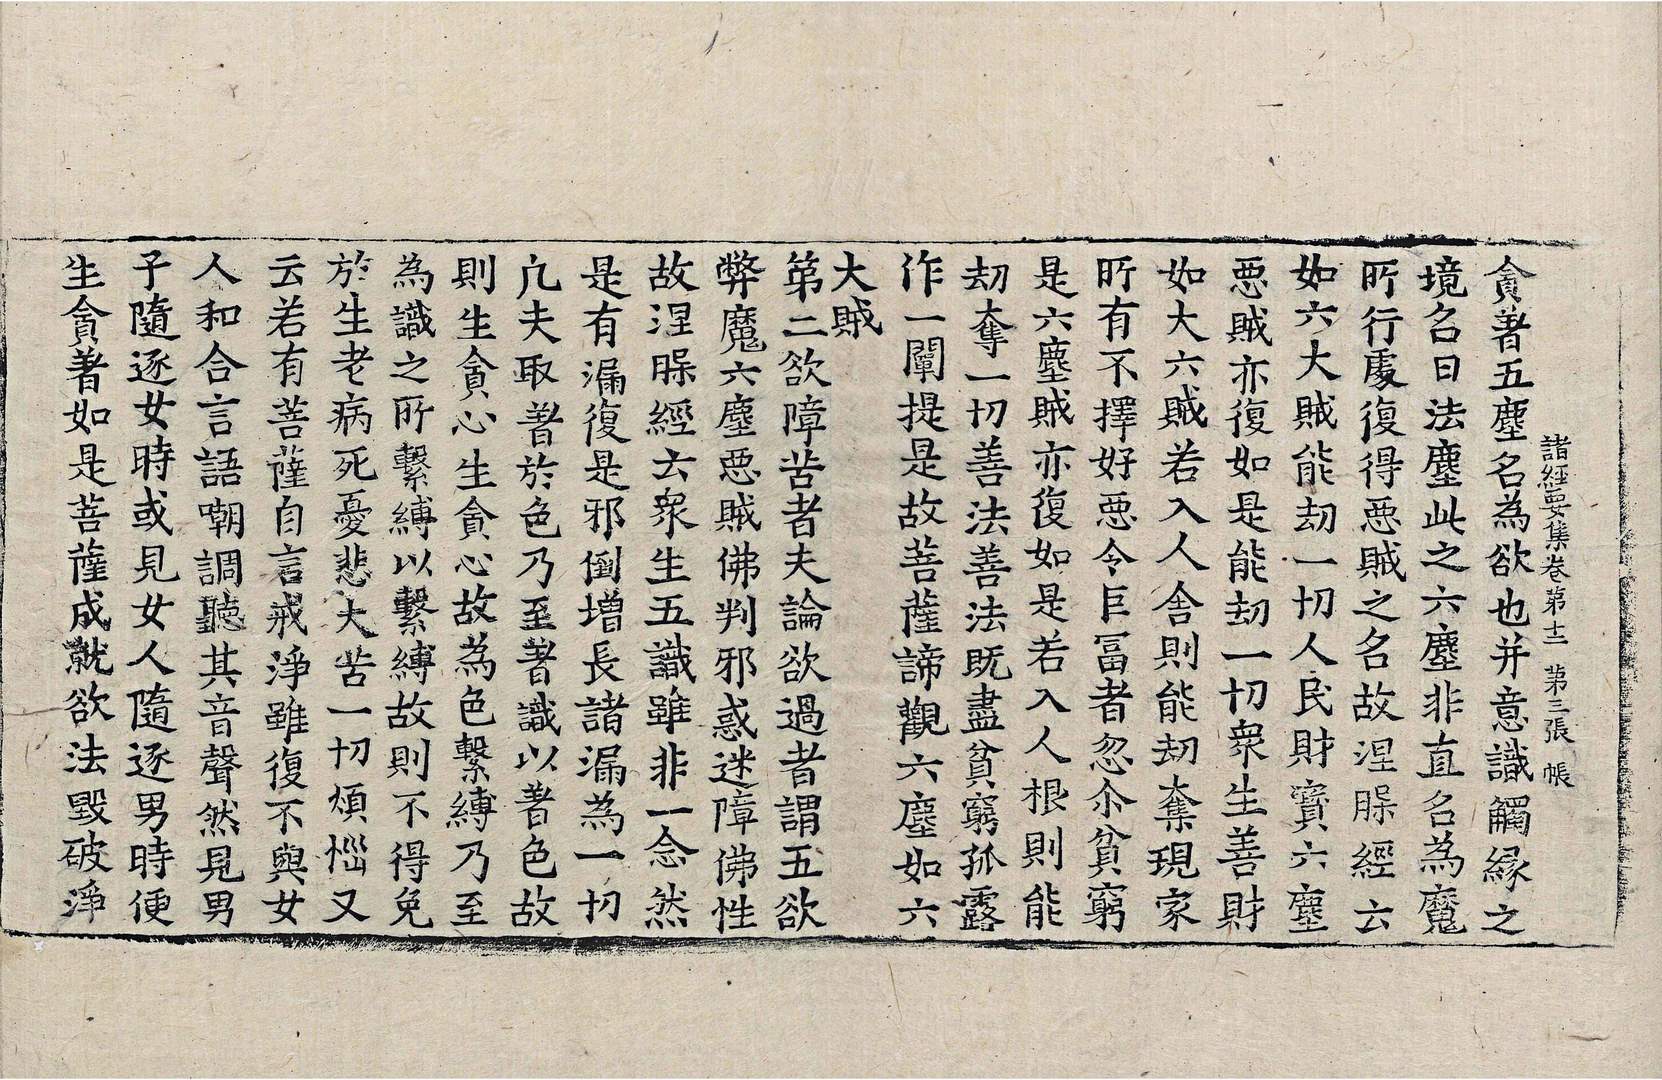 諸經要集卷第十二　第三張　帳
貪著五塵名為欲也并意識觸緣之
境名曰法塵此之六塵非直名為魔
所行處復得惡賊之名故涅槃經云
如六大賊能劫一切人民財寶六塵
惡賊亦復如是能劫一切衆生善財
如大六賊若入人舍則能劫奪現家
所有不擇好惡令巨冨者忽尒貧窮
是六塵賊亦復如是若入人根則能
劫奪一切善法善法既盡貧窮孤露
作一闡提是故菩薩諦觀六塵如六
大賊
第二欲障苦者夫論欲過者謂五欲
弊魔六塵惡賊佛判邪惑迷障佛性
故涅槃經云衆生五識雖非一念然
是有漏復是邪倒增長諸漏為一切
凢夫取著於色乃至著識以著色故
則生貪心生貪心故為色繫縛乃至
為識之所繫縛以繫縛故則不得免
於生老病死憂悲大苦一切煩惱又
云若有菩薩自言戒淨雖復不與女
人和合言語嘲調聽其音聲然見男
子隨逐女時或見女人隨逐男時便
生貪著如是菩薩成就欲法毀破淨